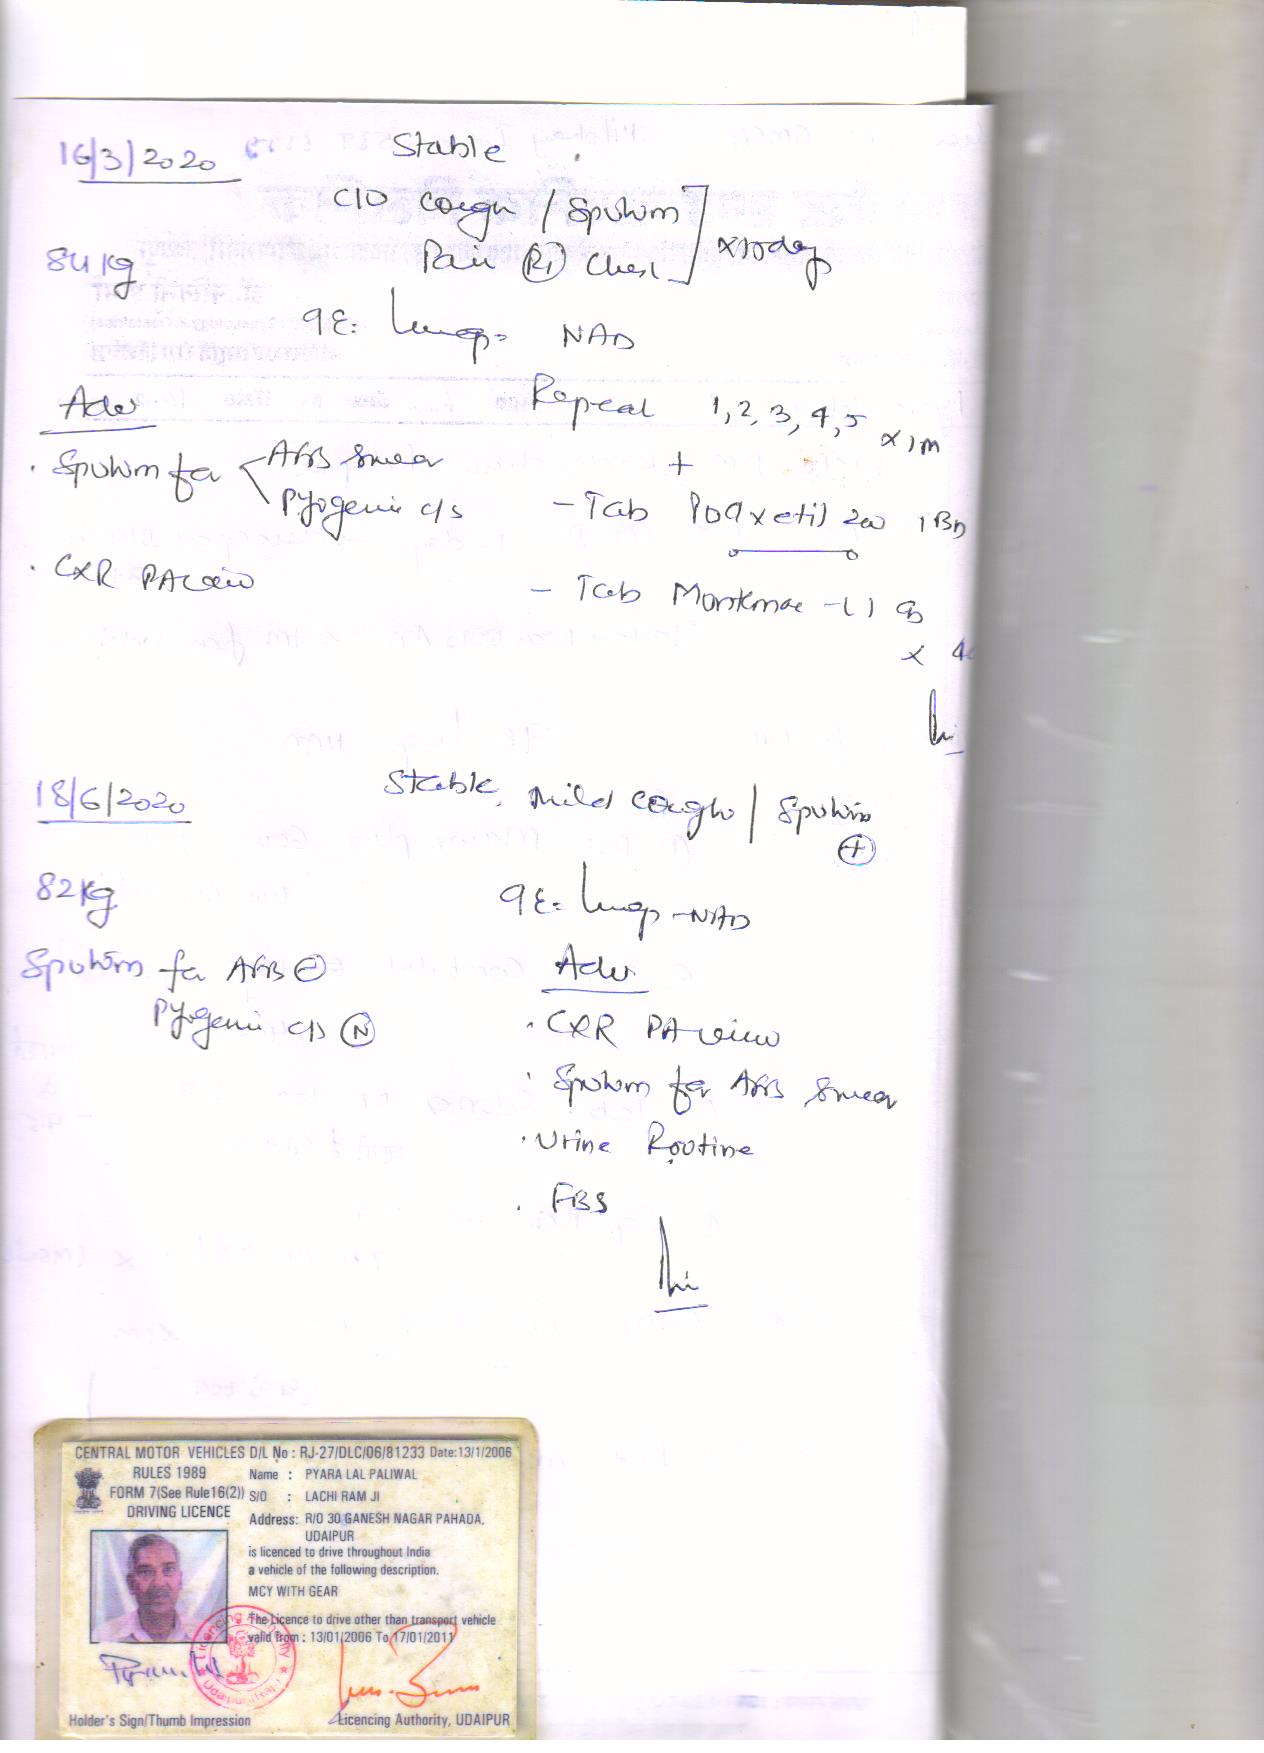 16/3/2020
Stable
C/O Cough / Sputum
Pain (Rt) Chest ] x 10 day
84 kg
O/E: Lungs - NAD
Adv
Repeat 1, 2, 3, 4, 5 x 1 m
+
. Sputum for < AFB Smear
Pyogenic c/s
- Tab Podxetil 200 1 BD
. CXR PA view
- Tab Montkmac -L 1
x
18/6/2020
Stable, Mild Cough / Sputum
(+)
82 kg
O/E: Lungs - NAD
Sputum for AFB (-)
Pyogenic c/s (N)
Adv
. CXR PA view
. Sputum for AFB Smear
. Urine Routine
. FBS
CENTRAL MOTOR VEHICLES D/L No : RJ-27/DLC/06/81233 Date:13/1/2006
RULES 1989
FORM 7(See Rule16(2))
DRIVING LICENCE
Name : PYARA LAL PALIWAL
S/O : LACHI RAM JI
Address: R/O 30 GANESH NAGAR PAHADA,
UDAIPUR
is licenced to drive throughout India
a vehicle of the following description.
MCY WITH GEAR
The Licence to drive other than transport vehicle
valid from : 13/01/2006 To 17/01/2011
Licencing Authority
Udaipur (Raj.)
Holder's Sign/Thumb Impression
Licencing Authority, UDAIPUR